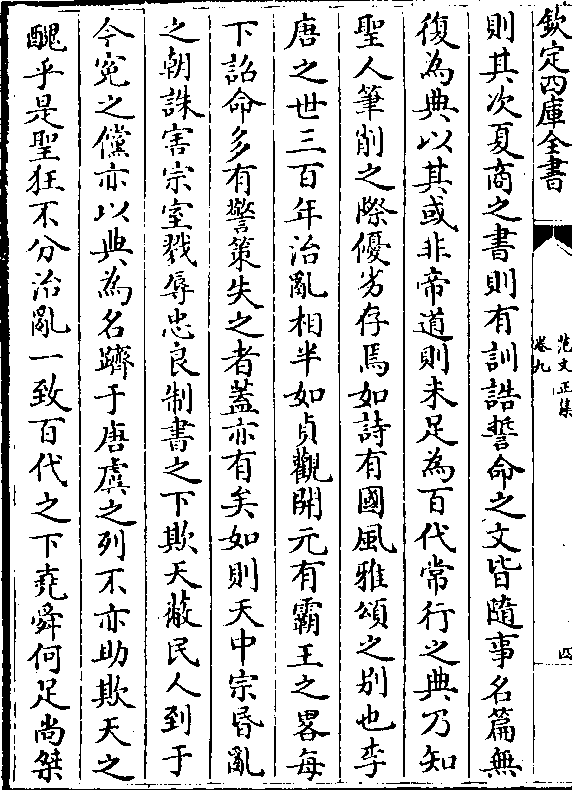 欽定四庫全書
范文正集
卷九
四
則其次夏商之書則有訓誥誓命之文皆隨事名篇無
復為典以其或非帝道則未足為百代常行之典乃知
聖人筆削之際優劣存焉如詩有國風雅頌之别也李
唐之世三百年治亂相半如貞觀開元有霸王之畧每
下詔命多有警策失之者蓋亦有矣如則天中宗昏亂
之朝誅害宗室戮辱忠良制書之下欺天蔽民人到于
今寃之儻亦以典為名躋于唐虞之列不亦助欺天之
醜乎是聖狂不分治亂一致百代之下堯舜何足尚桀